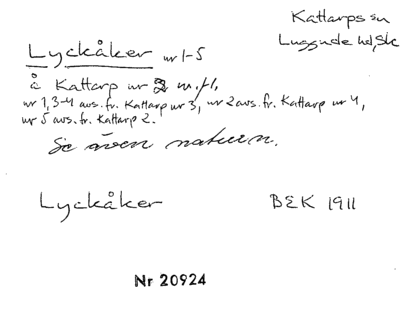 Kattarps sn
Luggude hd, Sk
Lyckåker nr 1-5
å Kattarp nr 2 m.fl.
nr 1, 3-4 avs. fr. Kattarp nr 3, nr 2 avs. fr. Kattarp nr 4,
nr 5 avs. fr. Kattarp 2.
Se även naturn.
Lyckåker BEK 1911
Nr 20924